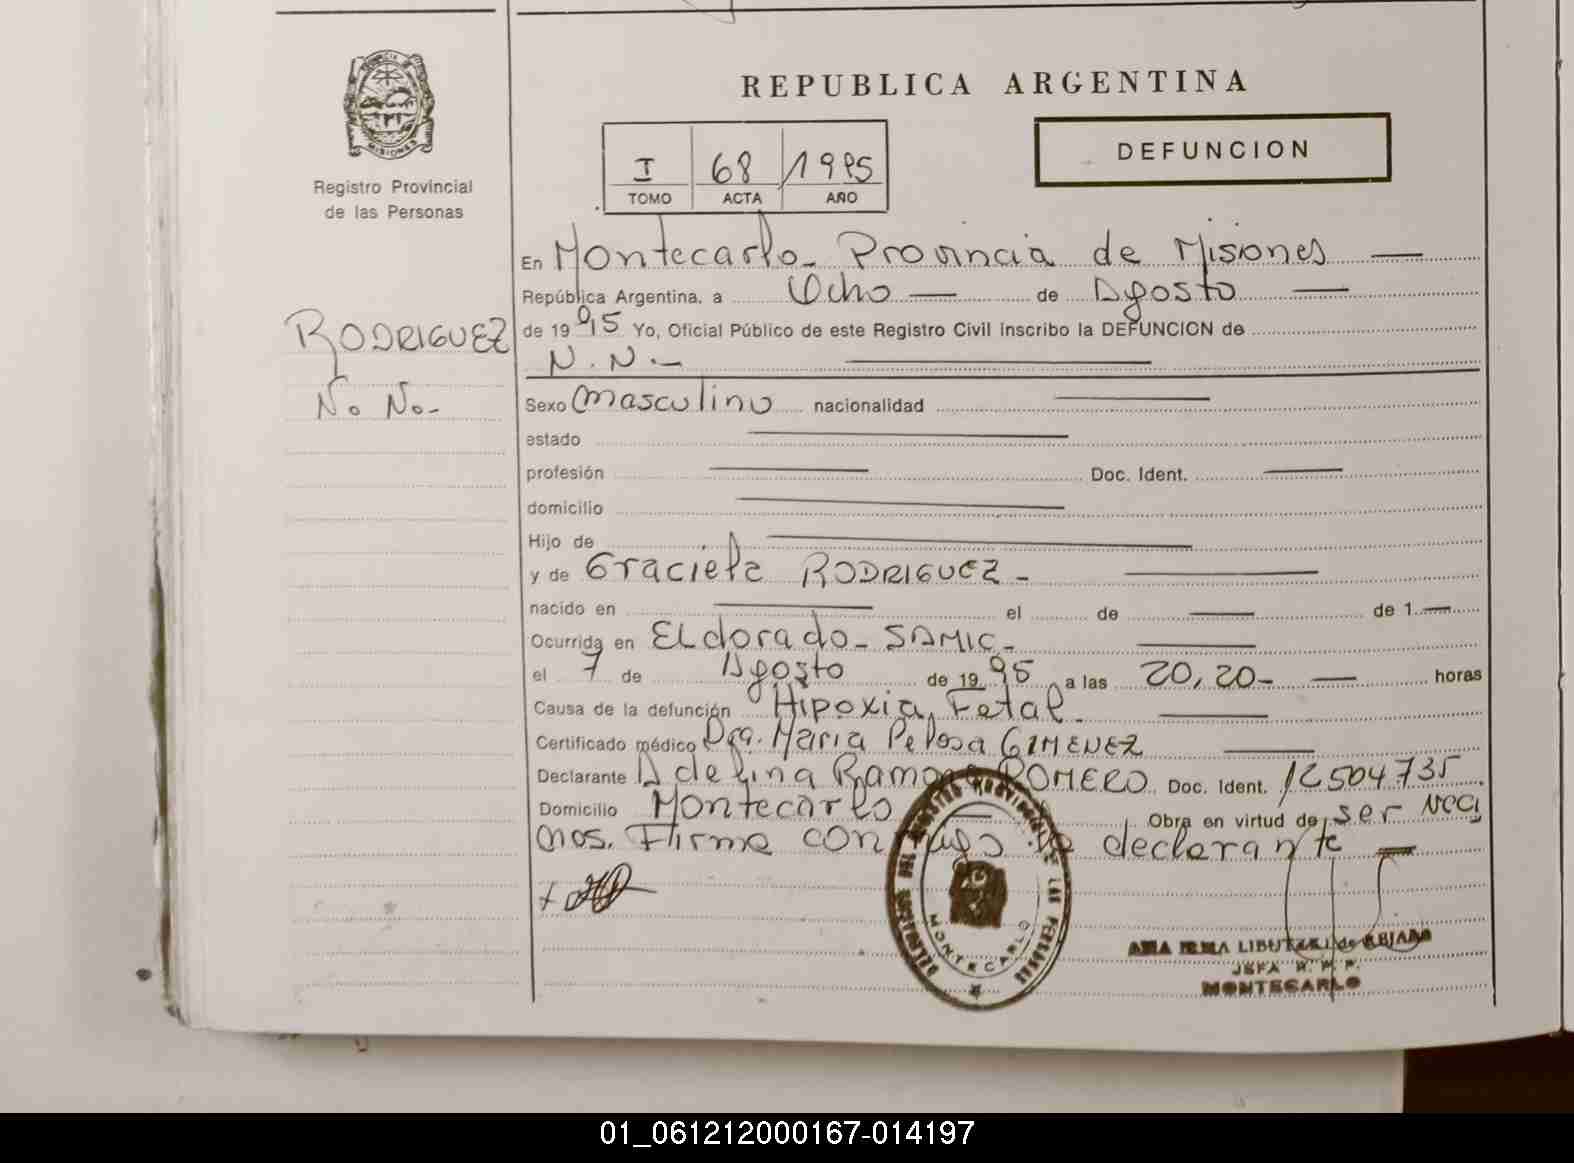 REPUBLICA ARGENTINA
PROVINCIA DE MISIONES
Registro Provincial
de las Personas
I 68 1995
TOMO ACTA AÑO
DEFUNCION
RODRIGUEZ
N. N.-
En Montecarlo- Provincia de Misiones —
República Argentina, a Ocho — de Agosto —
de 1995 Yo, Oficial Público de este Registro Civil inscribo la DEFUNCION de
N. N.- —
Sexo Masculino nacionalidad —
estado —
profesión — Doc. Ident. —
domicilio —
Hijo de —
y de Graciela RODRIGUEZ - —
nacido en — el de — de 1 —
Ocurrida en ELdorado- SAMIC- —
el 7 de Agosto de 1995 a las 20,20- — horas
Causa de la defunción Hipoxia Fetal. —
Certificado médico Dra. Maria GIMENEZ —
Declarante Adelina Ramona ROMERO Doc. Ident. 12504735
Domicilio Montecarlo — Obra en virtud de ser veci
nos. Firma con la declarante —
REGISTRO PROVINCIAL DE LAS PERSONAS
MONTECARLO
ANA IRMA
JEFA R. P. P.
MONTECARLO
01_061212000167-014197